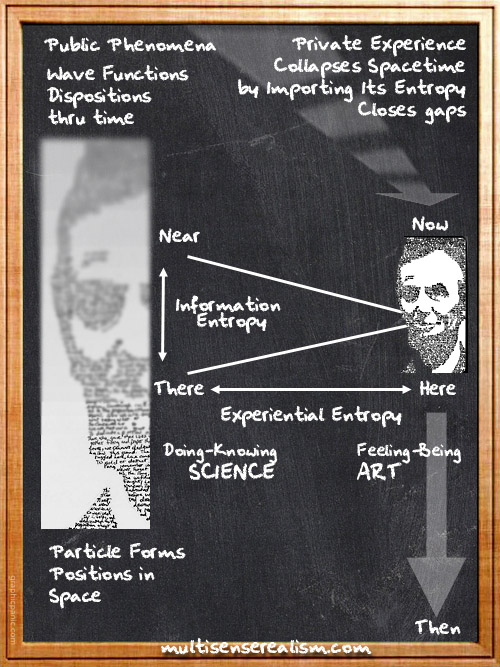 Public Phenomena
Wave Functions
Dispositions
thru time
Private Experience
Collapses Spacetime
by Importing Its Entropy
Closes gaps
Now
Near
Information
Entropy
There
Here
Experiential Entropy
Doing-Knowing
SCIENCE
Feeling-Being
ART
Particle Forms
Positions in
Space
Then
multisenserealism.com